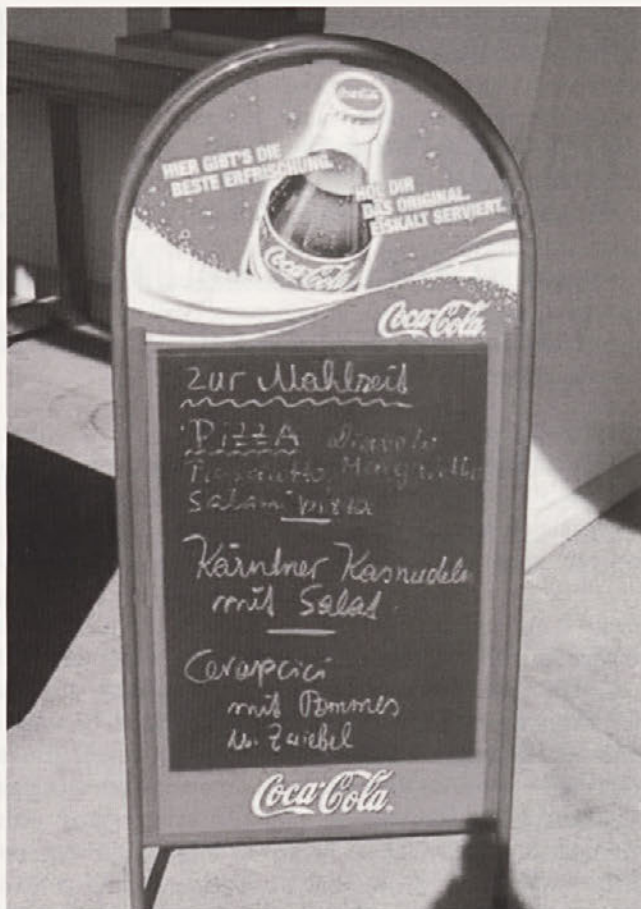 Coca-Cola
HIER GIBT'S DIE
BESTE ERFRISCHUNG.
HOL DIR
DAS ORIGINAL.
EISKALT SERVIERT.
Coca-Cola
Coca-Cola
zur Mahlzeit
PIZZA Diavolo
Salami pizza
Kärntner Kasnudeln
mit Salat
Cevapcici
mit Pommes
u. Zwiebel
Coca-Cola